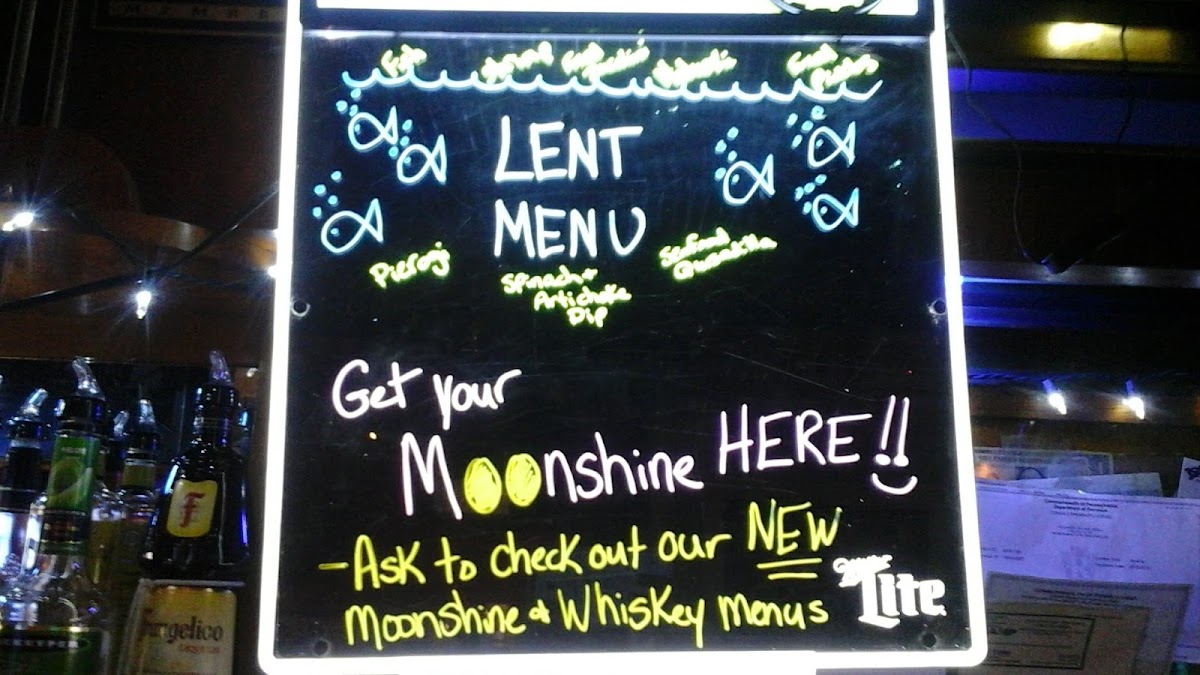 LENT
MENU
Pierogi
Spinach +
Artichoke
Dip
Seafood
Quesadilla
Get your
Moonshine HERE!!
- Ask to check out our NEW
Moonshine & Whiskey menus
Miller
Lite
F
Frangelico